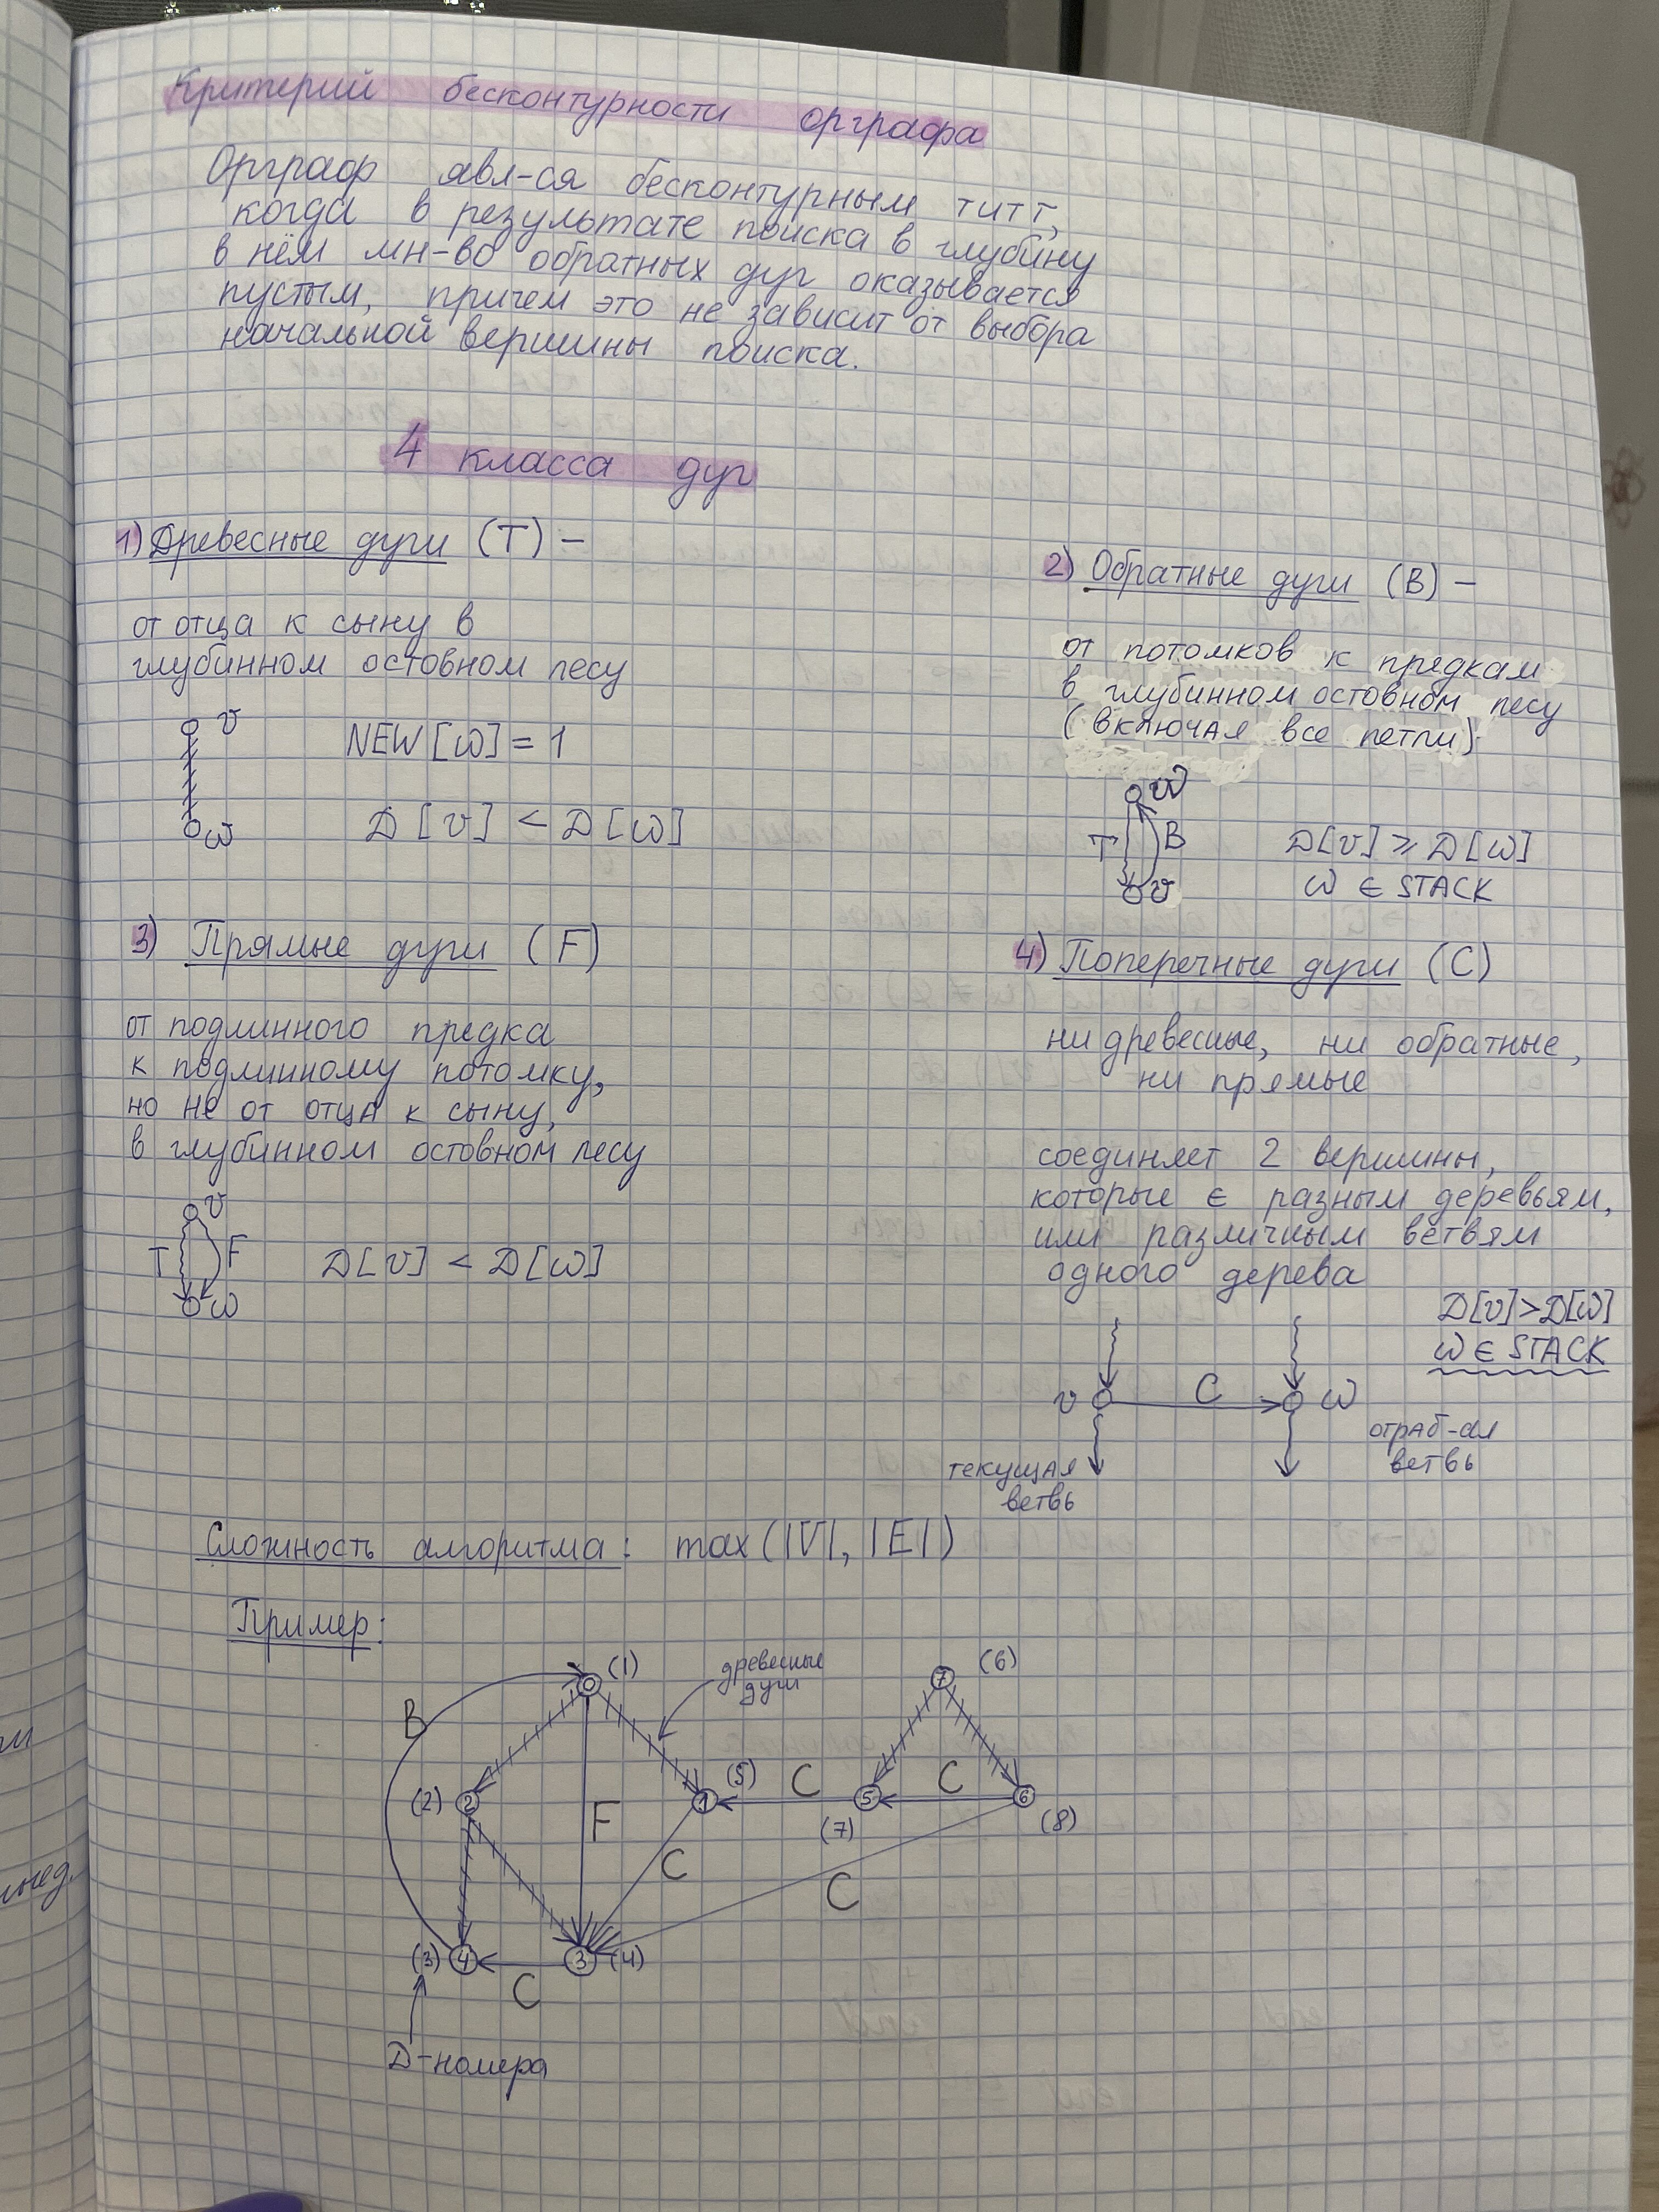 Критерий бесконтурности орграфа
Орграф явл-ся бесконтурным титт,
когда в результате поиска в глубину
в нём мн-во обратных дуг оказывается
пустым, причем это не зависит от выбора
начальной вершины поиска.
4 класса дуг
1) Древесные дуги (T) –
от отца к сыну в
глубинном остовном лесу
v
NEW[ω] = 1
ω
D[v] < D[ω]
2) Обратные дуги (B) –
от потомков к предкам
в глубинном остовном лесу
(включая все петли)
ω
T B
v
D[v] ⩾ D[ω]
ω ∈ STACK
3) Прямые дуги (F)
от подлинного предка
к подлинному потомку,
но не от отца к сыну,
в глубинном остовном лесу
v
T F
ω
D[v] < D[ω]
4) Поперечные дуги (C)
ни древесные, ни обратные,
ни прямые
соединяет 2 вершины,
которые ∈ разным деревьям,
или различным ветвям
одного дерева
D[v] > D[ω]
ω ∈ STACK
v C ω
текущая
ветвь
отраб-ая
ветвь
Сложность алгоритма: max(|V|, |E|)
Пример:
0 (1)
древесные
дуги
7 (6)
B
(2) 2
F
1 (5)
C
5 (7)
C
6 (8)
C
C
(3) 4
C
3 (4)
D-номера